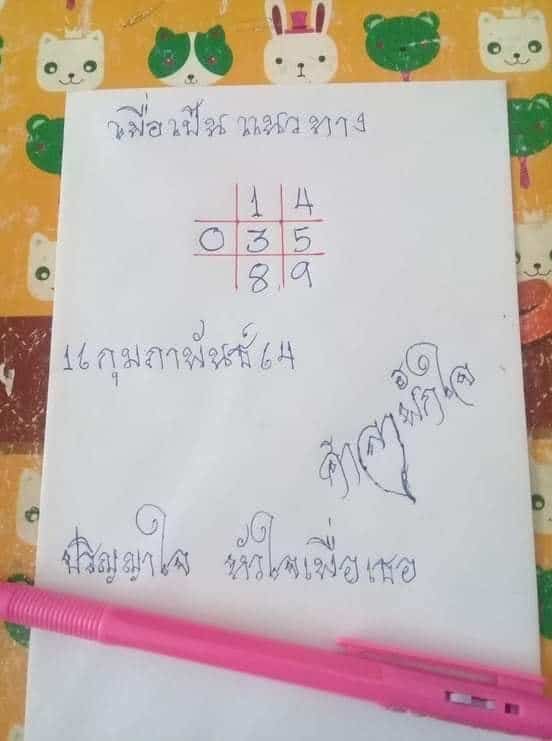 เพื่อเป็นแนวทาง
1 4
0 3 5
8 9
16 กุมภาพันธ์ 64
ศาลาพักใจ
ปริญญาใจ หัวใจเพื่อเธอ